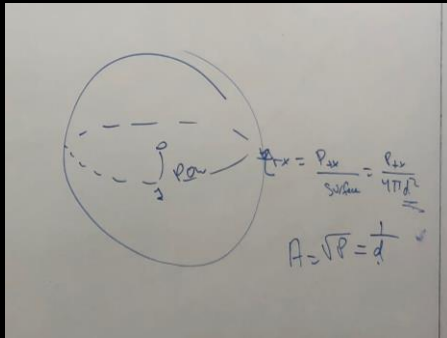 Pow
P_rx = P_tx / surface = P_tx / 4πd²
A = √P = 1/d